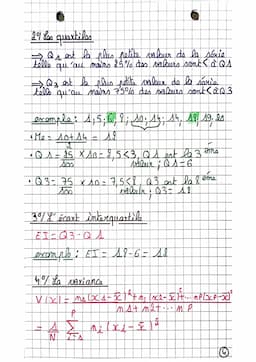 2°/ Les quartiles
=> Q1 est la plus petite valeur de la série
telle qu'au moins 25% des valeurs sont < à Q1
=> Q3 est la plus petite valeur de la série
telle qu'au moins 75% des valeurs sont < à Q3
exemple : 1, 5, 6, 8, 10, 14, 14, 18, 19, 20
• Me = 10+14 =
• Q1 = 25/100 x 10 = 2,5 < 3, Q1 est la 3ème
valeur ; Q1 = 6
• Q3 = 75/100 x 10 = 7,5 < 8, Q3 est la 8ème
valeur ; Q3 = 18
3°/ L'écart interquartile
EI = Q3 - Q1
exemple : EI = 18 - 6 =
4°/ La variance
V(x) = n1(x1-x̄)²+n2(x2-x̄)²+... np(xp-x̄)²
n1+n2+... np
= 1/N Σ